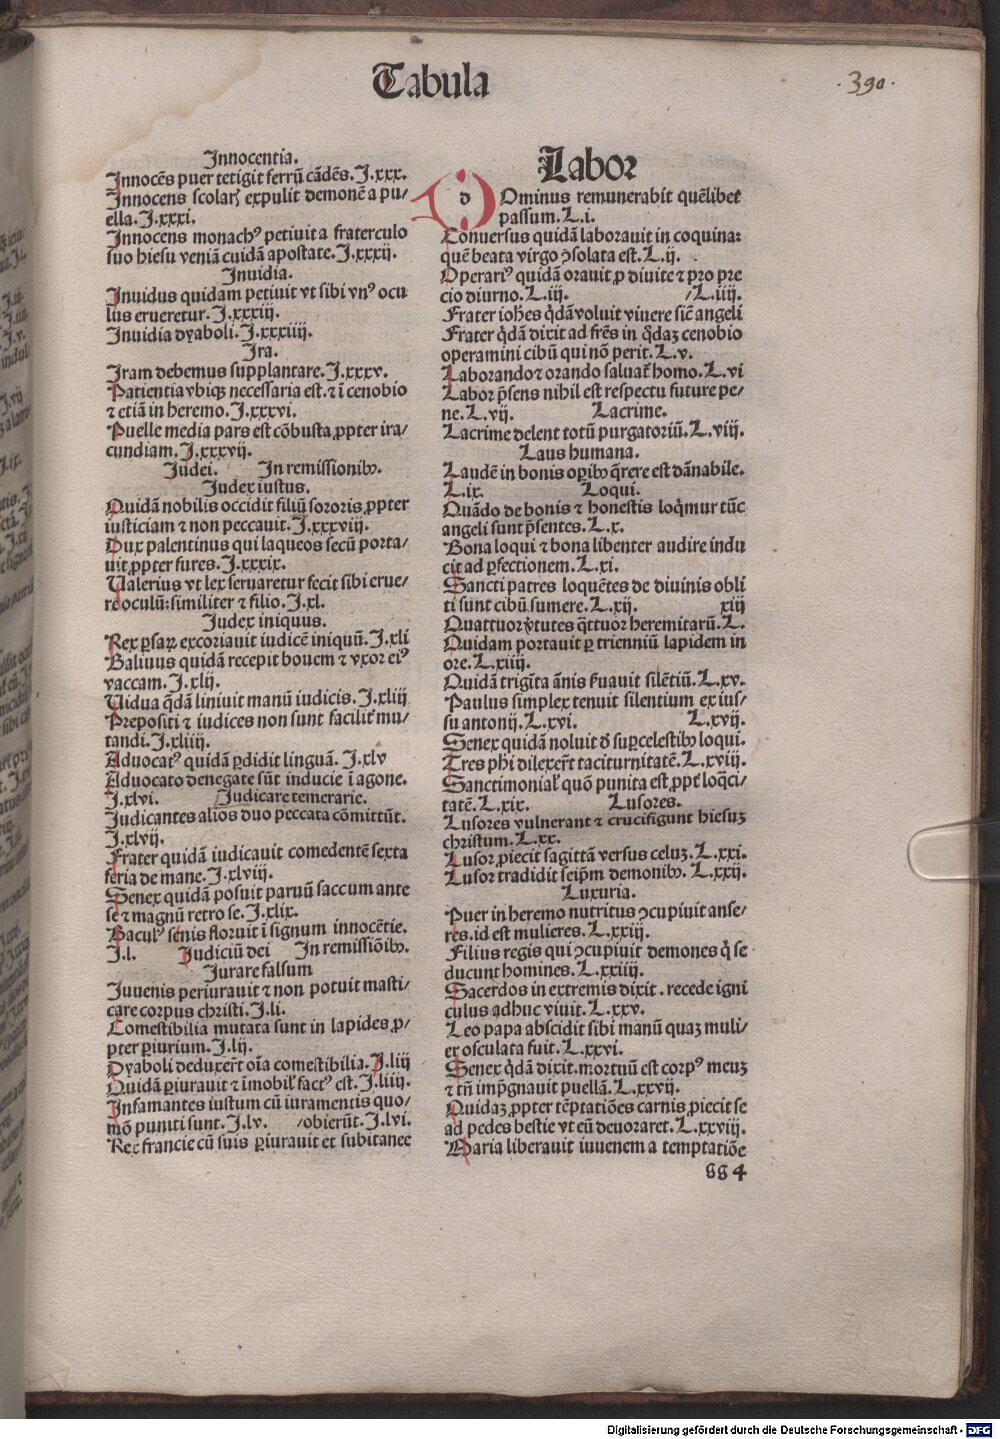 Tabula
.390.
Innocentia.
Innocēs puer tetigit ferrū cādēs. J.xxx.
Innocens scolarꝭ expulit demonē a pu/
ella. J.xxxi.
Innocens monachꝰ petiuit a fraterculo
suo hiesu veniā cuidā apostate. J.xxxij.
Inuidia.
Inuidus quidam petiuit vt sibi vnꝰ ocu
lus erueretur. J.xxxiij.
Inuidia dyaboli. J.xxxiiij.
Ira.
Iram debemus supplantare. J.xxxv.
Patientia vbiqꝫ necessaria est. ⁊ ī cenobio
⁊ etiā in heremo. J.xxxvi.
Puelle media pars est cōbusta ꝓpter ira/
cundiam. J.xxxvij.
Judei. In remissionibꝫ.
Judex iustus.
Quidā nobilis occidit filiū sororis ꝓpter
iusticiam ⁊ non peccauit. J.xxxviij.
Dux palentinus qui laqueos secū porta/
uit ꝓpter fures. J.xxxix.
Valerius vt lex seruaretur fecit sibi erue/
re oculū: similiter ⁊ filio. J.xl.
Judex iniquus.
Rex ꝑsaꝝ excoriauit iudicē iniquū. J.xli
Baliuus quidā recepit bouem ⁊ vxor eiꝰ
vaccam. J.xlij.
Vidua q̄dā liniuit manū iudicis. J.xliij
Prepositi ⁊ iudices non sunt facilit̉ mu/
tandi. J.xliiij.
Aduocatꝰ quidā ꝑdidit linguā. J.xlv
Aduocato denegate sūt inducie ī agone.
J.xlvi. /Judicare temerarie.
Judicantes alios duo peccata cōmittūt.
J.xlvij.
Frater quidā iudicauit comedentē sexta
feria de mane. J.xlviij.
Senex quidā posuit paruū saccum ante
se ⁊ magnū retro se. J.xlix.
Baculꝰ senis floruit ī signum innocētie.
J.l. Judiciū dei In remissiōibꝫ.
Jurare falsum
Juuenis periurauit ⁊ non potuit masti/
care corpus christi. J.li.
Comestibilia mutata sunt in lapides ꝓ/
pter ꝑiurium. J.lij.
Dyaboli deduxer̄t oīa comestibilia. J.liij
Quidā ꝑiurauit ⁊ īmobil̓ factꝰ est. J.liiij.
Infamantes iustum cū iuramentis quo/
mō puniti sunt. J.lv. /obierūt. J.lvi.
Rex francie cū suis ꝑiurauit et subitanee
Labor
d
Ominus remunerabit quēlibet
passum. L.i.
Conuersus quidā laborauit in coquina:
quē beata virgo ↄsolata est. L.ij.
Operariꝰ quidā orauit ꝓ diuite ⁊ pro pre
cio diurno. L.iij. /L.iiij.
Frater ioh̄es q̇dā voluit viuere sic̄ angeli
Frater q̇dā dixit ad frēs in q̇daꝫ cenobio
operamini cibū qui nō perit. L.v.
Laborando ⁊ orando saluat̄ homo. L.vi
Labor p̄sens nihil est respectu future pe/
ne. L.vij. Lacrime.
Lacrime delent totū purgatoriū. L.viij.
Laus humana.
Laudē in bonis oꝑibꝫ q̄rere est dānabile.
L.ix. Loqui.
Quādo de bonis ⁊ honestis loq̇mur tūc
angeli sunt p̄sentes. L.x.
Bona loqui ⁊ bona libenter audire indu
cit ad ꝑfectionem. L.xi.
Sancti patres loquētes de diuinis obli
ti sunt cibū sumere. L.xij. xiij
Quattuor v̓tutes q̄ttuor heremitarū. L.
Quidam portauit ꝑ trienniū lapidem in
ore. L.xiiij.
Quidā trigīta ānis ẜuauit silētiū. L.xv.
Paulus simplex tenuit silentium ex ius/
su antonij. L.xvi. L.xvij.
Senex quidā noluit d̓ suꝑcelestibꝫ loqui.
Tres ph̄i dilexer̄t taciturnitatē. L.xviij.
Sanctimonial̓ quō punita est ꝓpt̓ loq̄ci/
tatē. L.xix. Lusores.
Lusores vulnerant ⁊ crucifigunt hiesuꝫ
christum. L.xx.
Lusor ꝓiecit sagittā versus celuꝫ. L.xxi.
Lusor tradidit seip̄m demonibꝫ. L.xxij.
Luxuria.
Puer in heremo nutritus ↄcupiuit anse/
res. id est mulieres. L.xxiij.
Filius regis qui ↄcupiuit demones q̇ se
ducunt homines. L.xxiiij.
Sacerdos in extremis dixit. recede igni
culus adhuc viuit. L.xxv.
Leo papa abscidit sibi manū quaꝫ muli/
er osculata fuit. L.xxvi.
Senex q̇dā dixit. mortuū est corpꝰ meuꝫ
⁊ tn̄ imp̄gnauit puellā. L.xxvij.
Quidaꝫ ꝓpter tēptatiōes carnis ꝓiecit se
ad pedes bestie vt eū deuoraret. L.xxviij.
Maria liberauit iuuenem a temptatiōe
gg 4
Digitalisierung gefördert durch die Deutsche Forschungsgemeinschaft - DFG